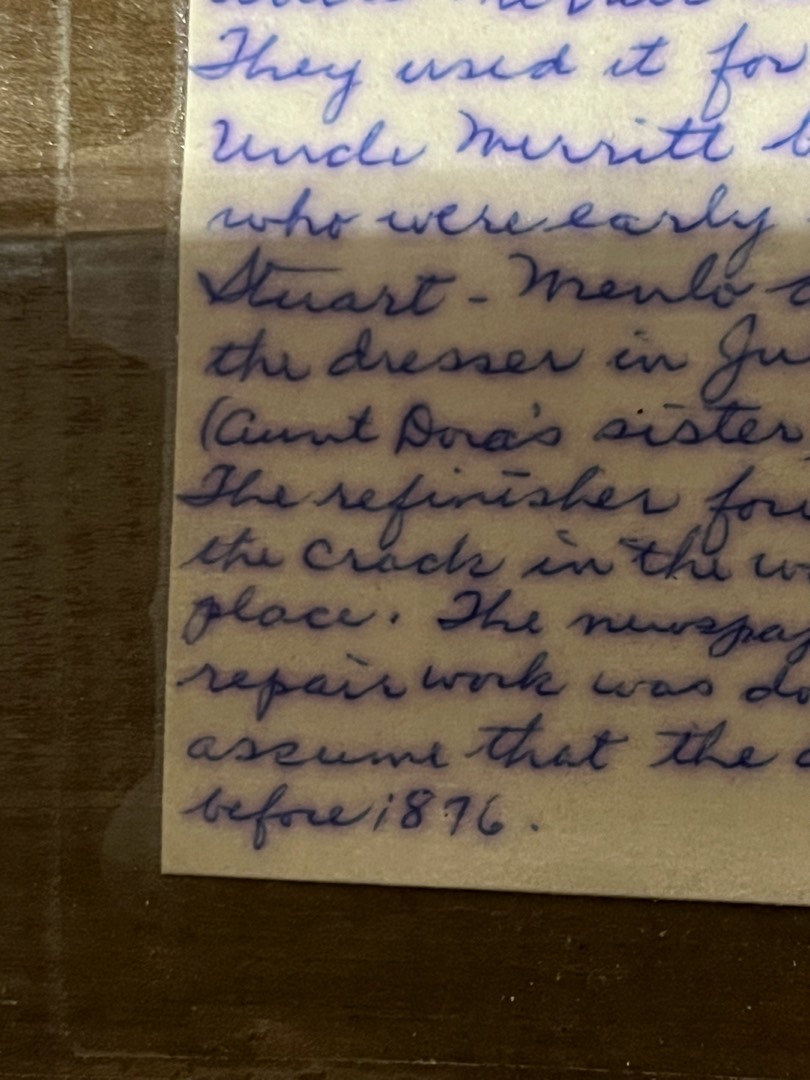 They used it for
Uncle Merritt b
who were early
Stuart - Menlo a
the dresser in Ju
(Aunt Dora's sister,
The refinisher fou
the crack in the wo
place. The newspap
repair work was do
assume that the d
before 1876.